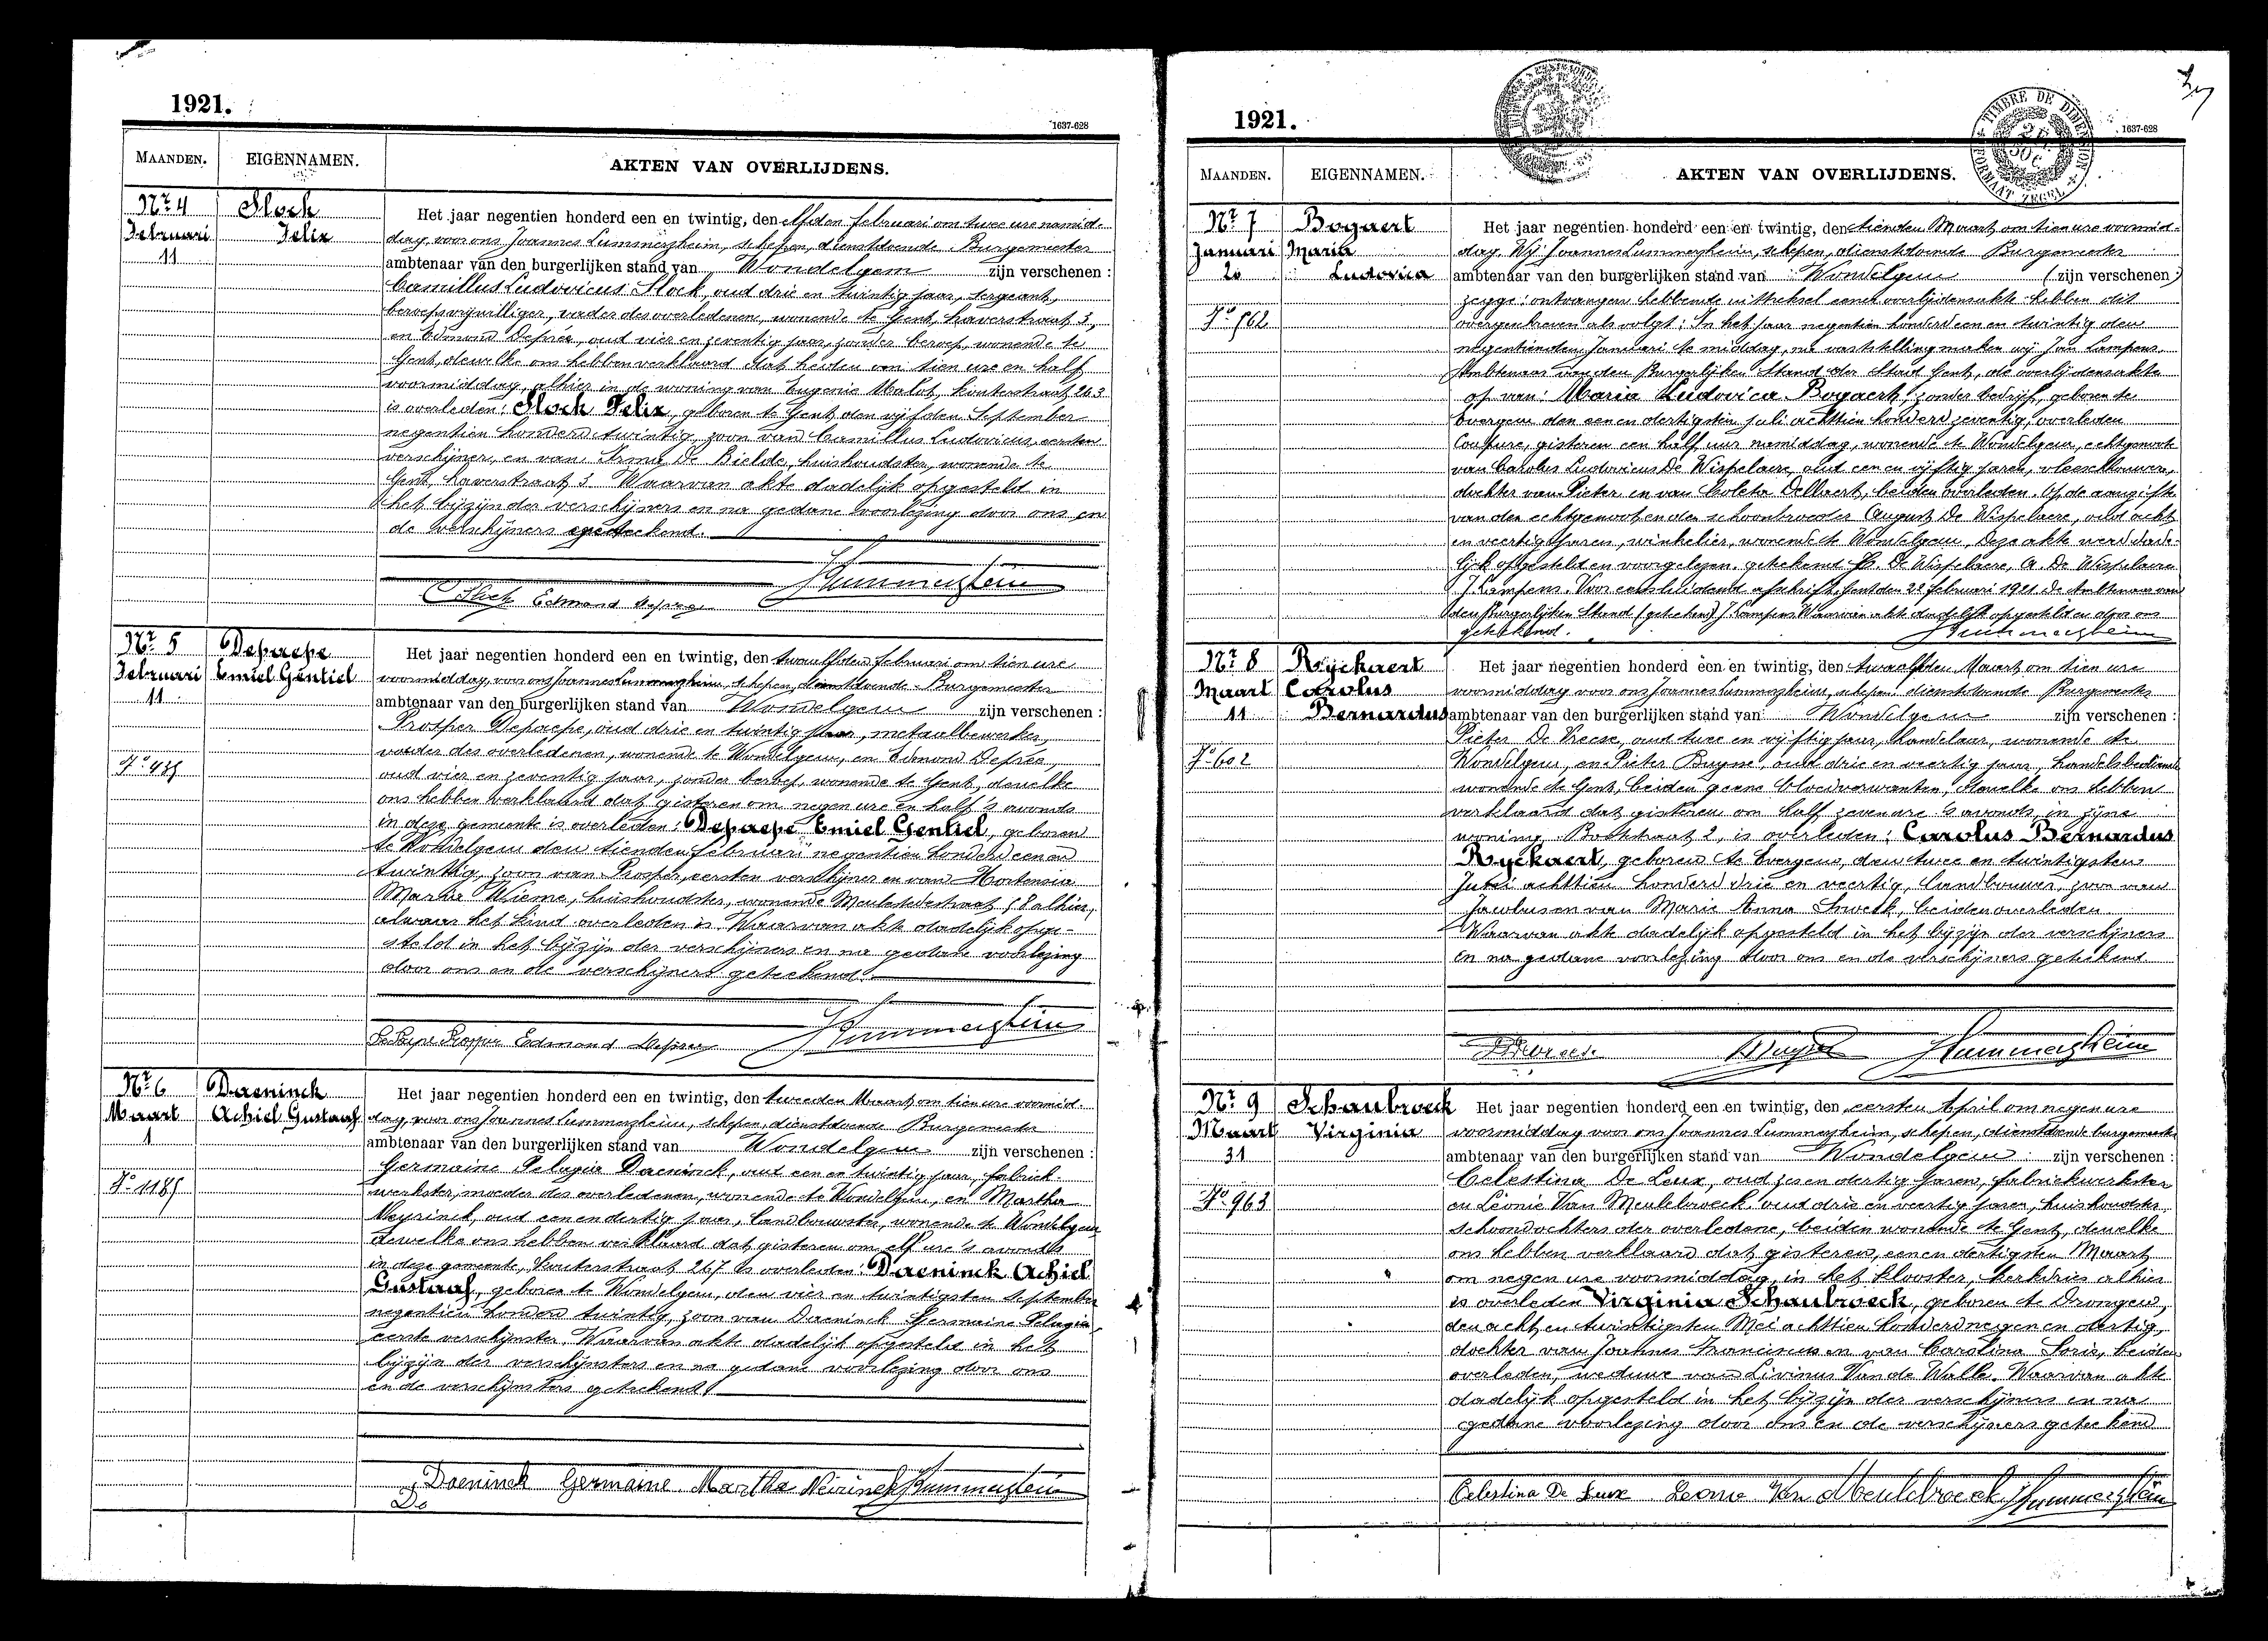 1921.
1637-628
MAANDEN.
EIGENNAMEN.
AKTEN VAN OVERLIJDENS.
Nr 4
Februari
11
Stock
Felix
Het jaar negentien honderd een en twintig, den elfden februari om twee ure namid-
dag, voor ons Joannes Lummerzheim, schepen, dienstdoende Burgemeester
ambtenaar van den burgerlijken stand van Wondelgem zijn verschenen :
Camillus Ludovicus Stock, oud drie en twintig jaar, sergeant,
beroepsvrijwilliger, vader des overledenen, wonende te Gent, haverstraat 3,
en Edmond Deprée, oud vier en zeventig jaar, zonder beroep, wonende te
Gent, dewelke ons hebben verklaard dat heden om tien ure en half
voormiddag, alhier in de woning van Eugenie Malot, kouterstraat 263
is overleden: Stock Felix, geboren te Gent den vijfden September
negentien honderd twintig, zoon van Camillus Ludovicus, eersten
verschijner, en van Irma De Bielde, huishoudster, wonende te
Gent, haverstraat 3. Waarvan akte dadelijk opgesteld in
het bijzijn der verschijners en na gedane voorlezing door ons en
de verschijners geteekend.
C Stock Edmond Deprez JLummerzheim
Nr 5
Februari
11
No 435
Depaepe
Emiel Gentiel
Het jaar negentien honderd een en twintig, den twaalfden februari om tien ure
voormiddag, voor ons Joannes Lummerzheim, schepen, dienstdoende Burgemeester
ambtenaar van den burgerlijken stand van Wondelgem zijn verschenen :
Prosper Depaepe, oud drie en twintig jaar, metaalbewerker,
vader des overledenen, wonende te Wondelgem, en Edmond Deprée,
oud vier en zeventig jaar, zonder beroep, wonende te Gent, dewelke
ons hebben verklaard dat gisteren om negen ure en half 's avonds
in deze gemeente is overleden: Depaepe Emiel Gentiel, geboren
te Wondelgem den tienden februari negentien honderd een en
twintig, zoon van Prosper, eersten verschijner en van Hortensia
Maria Wieme, huishoudster, wonende Meulestedestraat 58 alhier,
alwaar het kind overleden is. Waarvan akte dadelijk opge-
steld in het bijzijn der verschijners en na gedane voorlezing
door ons en de verschijners geteekend.
DePaepe Prosper Edmond Deprez JLummerzheim
Nr 6
Maart
1
No 1185
Daeninck
Achiel Gustaaf
Het jaar negentien honderd een en twintig, den tweeden Maart om tien ure voormid-
dag, voor ons Joannes Lummerzheim, schepen, dienstdoende Burgemeester
ambtenaar van den burgerlijken stand van Wondelgem zijn verschenen :
Germaine Pelagia Daeninck, oud een en twintig jaar, fabriek-
werkster, moeder des overledenen, wonende te Wondelgem, en Martha
Neyrinck, oud een en dertig jaar, landbouwster, wonende te Wondelgem
dewelke ons hebben verklaard dat gisteren om elf ure 's avonds
in deze gemeente, kouterstraat 267 is overleden: Daeninck Achiel
Gustaaf, geboren te Wondelgem, den vier en twintigsten September
negentien honderd twintig, zoon van Daeninck Germaine Pelagia
eerste verschijnster. Waarvan akte dadelijk opgesteld in het
bijzijn der verschijnsters en na gedane voorlezing door ons
en de verschijnsters geteekend.
Daeninck Germaine Martha Neirinck JLummerzheim
De
1921.
1637-628
TIMBRE DE DIMENSION
FORMAAT ZEGEL
MAANDEN.
EIGENNAMEN.
AKTEN VAN OVERLIJDENS.
Nr 7
Januari
20
No 762
Bogaert
Maria
Ludovica
Het jaar negentien honderd een en twintig, den tienden Maart om tien ure voormid-
dag, Wij Joannes Lummerzheim, schepen, dienstdoende Burgemeester
ambtenaar van den burgerlijken stand van Wondelgem (zijn verschenen :)
zegge: ontvangen hebbende uittreksel eener overlijdensakte hebben dit
overgeschreven als volgt: In het jaar negentien honderd een en twintig den
negentienden Januari te middag, na vaststelling maken wij Jan Lampens,
Ambtenaar van den Burgerlijken Stand der Stad Gent, de overlijdensakte
op van: Maria Ludovica Bogaert, zonder bedrijf, geboren te
Evergem den een en dertigsten juli achttien honderd zeventig, overleden
Coupure, gisteren een half uur namiddag, wonende te Wondelgem, echtgenoote
van Carolus Ludovicus De Wispelaere, oud een en vijftig jaren, vleeschhouwer,
dochter van Pieter en van Coleta Dellaert, beiden overleden. Op de aangifte
van den echtgenoot en den schoonbroeder August De Wispelaere, oud acht
en veertig jaren, winkelier, wonende te Wondelgem. Deze akte werd dade-
lijk opgesteld en voorgelezen. geteekend De Wispelaere, A. De Wispelaere
J. Lampens. Voor eensluidend afschrift, Gent den 22 februari 1921 de Ambtenaar van
den Burgerlijken Stand (geteekend) J. Lampens Waarvan akt dadelijk opgesteld en door ons
geteekend.
JLummerzheim
Nr 8
Maart
11
No 602
Ryckaert
Carolus
Bernardus
Het jaar negentien honderd een en twintig, den twaalfden Maart om tien ure
voormiddag voor ons Joannes Lummerzheim, schepen, dienstdoende Burgemeester
ambtenaar van den burgerlijken stand van Wondelgem zijn verschenen :
Pieter De Vreese, oud twee en vijftig jaar, handelaar, wonende te
Wondelgem, en Pieter Buyse, oud drie en veertig jaar, handelsbediende
wonende te Gent, beiden geene bloedverwanten, dewelke ons hebben
verklaard dat gisteren om half zeven ure 's avonds, in zijne
woning, Botestraat 2, is overleden: Carolus Bernardus
Ryckaert, geboren te Evergem, den twee en twintigsten
Juni achttien honderd drie en veertig, landbouwer, zoon van
Jacobus en van Marie Anna Snoeck, beiden overleden.
Waarvan akt dadelijk opgesteld in het bijzijn der verschijners
en na gedane voorlezing door ons en de verschijners geteekend
JLummerzheim
Nr 9
Maart
31
No 963
Schaubroeck
Virginia
Het jaar negentien honderd een en twintig, den eersten April om negen ure
voormiddag voor ons Joannes Lummerzheim, schepen, dienstdoende burgemeester
ambtenaar van den burgerlijken stand van Wondelgem zijn verschenen :
Celestina De Leux, oud zes en dertig jaren, fabriekwerkster
en Léonie Van Meulebroeck, oud drie en veertig jaren, huishoudster,
schoondochters der overledene, beiden wonende te Gent, dewelke
ons hebben verklaard dat gisteren, een en dertigsten Maart
om negen ure voormiddag, in het klooster, kerkdries alhier
is overleden Virginia Schaubroeck, geboren te Drongen,
den acht en twintigsten Mei achttien honderd negen en dertig,
dochter van Joannes Franciscus en van Carolina Soris, beiden
overleden, weduwe van Livinus Van de Walle. Waarvan akte
dadelijk opgesteld in het bijzijn der verschijners en na
gedane voorlezing door ons en de verschijners geteekend
Celestina De Leux Leonie Van Meulebroeck JLummerzheim